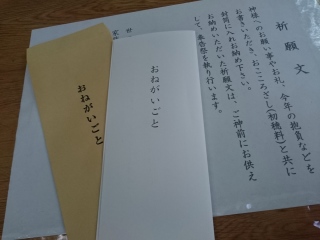 祈願文
神様へのお願い事やお礼、今年の抱負などを
お書きいただき、おこころざし(初穂料)と共に
封筒に入れお納め下さい。
お納めいただいた祈願文は、ご神前にお供え
して、奉告祭を執り行います。
おねがいごと
おねがいごと